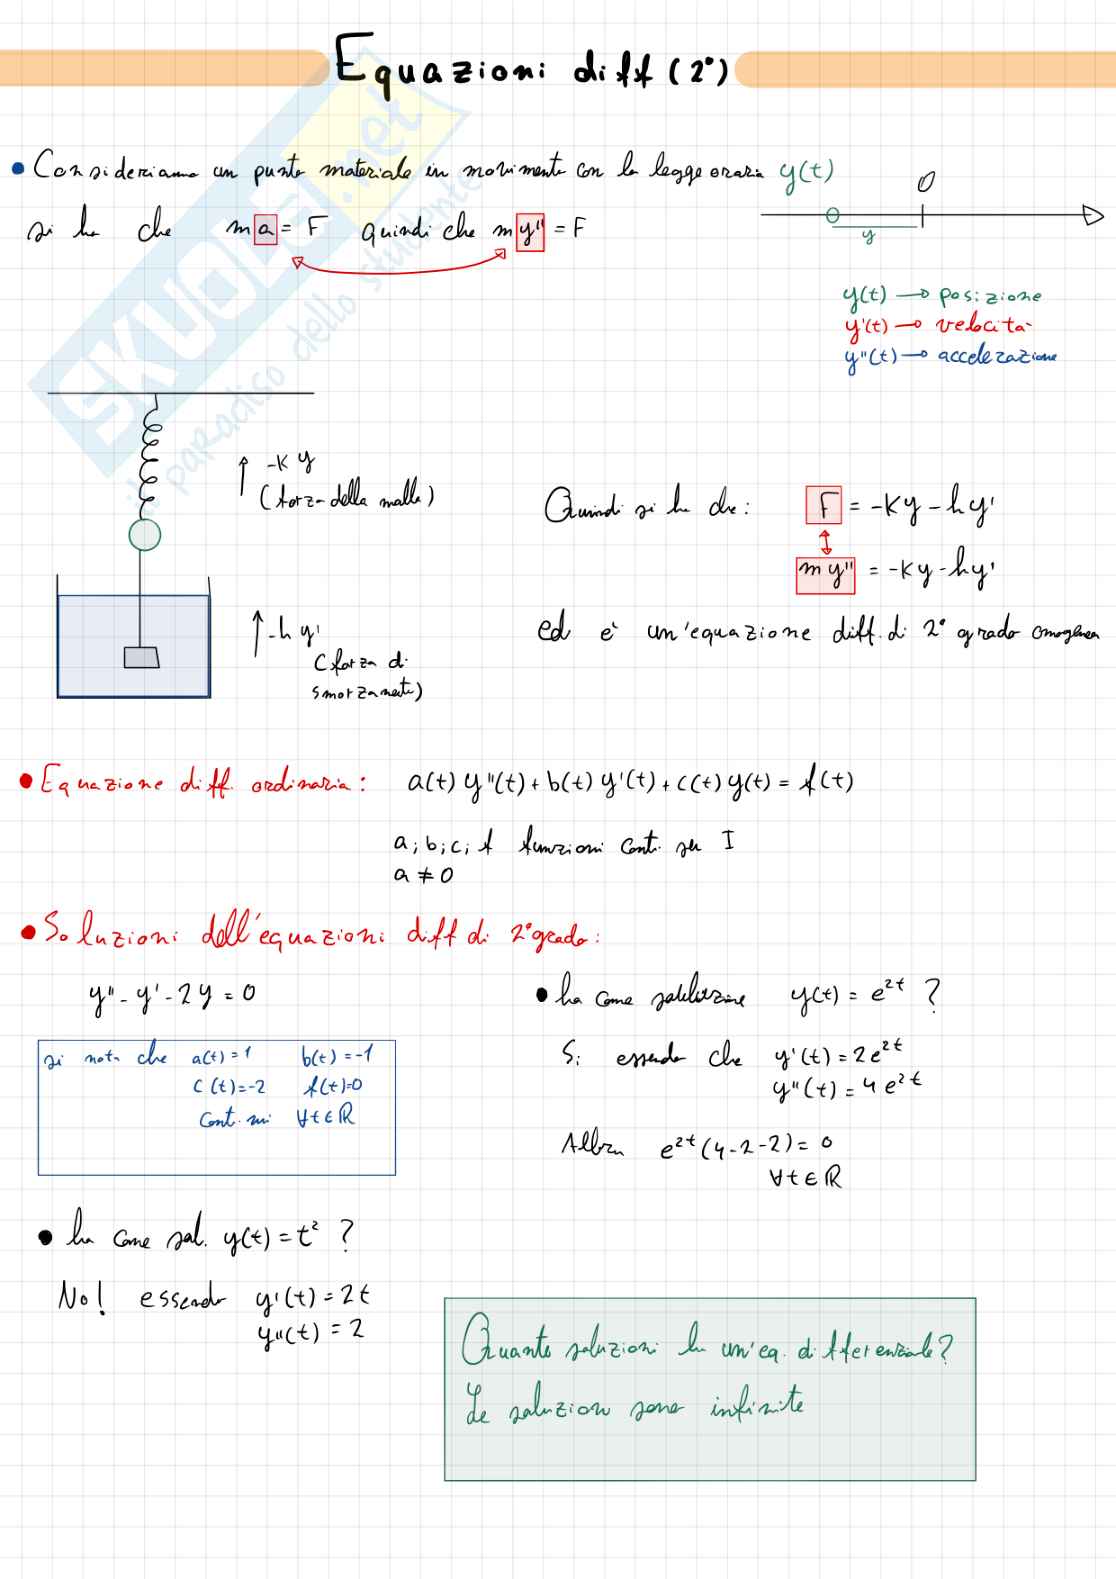 Equazioni diff (2°)
• Consideriamo un punto materiale in movimento con la legge oraria y(t)
si ha che m a = F quindi che m y'' = F
O
y
y(t) → posizione
y'(t) → velocità
y''(t) → accelerazione
-K y
(forza della molla)
-h y'
(forza di
smorzamento)
Quindi si ha che: F = -Ky - hy'
m y'' = -Ky - hy'
ed è un'equazione diff. di 2° grado omogenea
• Equazione diff. ordinaria: a(t) y''(t) + b(t) y'(t) + c(t) y(t) = f(t)
a; b; c; f funzioni cont. su I
a ≠ 0
• Soluzioni dell'equazioni diff di 2° grado:
y'' - y' - 2y = 0
si nota che a(t) = 1 b(t) = -1
c(t) = -2 f(t)=0
cont. in ∀t ∈ ℝ
• ha come soluzione y(t) = e^2t ?
Si essendo che y'(t) = 2e^2t
y''(t) = 4e^2t
Allora e^2t (4-2-2) = 0
∀t ∈ ℝ
• ha come sol. y(t) = t² ?
No! essendo y'(t) = 2t
y''(t) = 2
Quante soluzioni ha un'eq. differenziale?
Le soluzioni sono infinite
SKUOLA.net
il paradiso dello studente